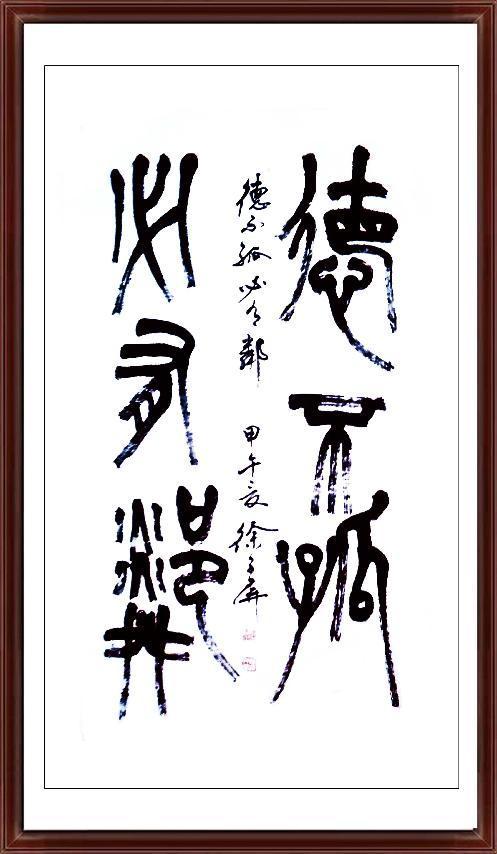 德不孤
德不孤必有鄰 甲午夏徐
必有鄰